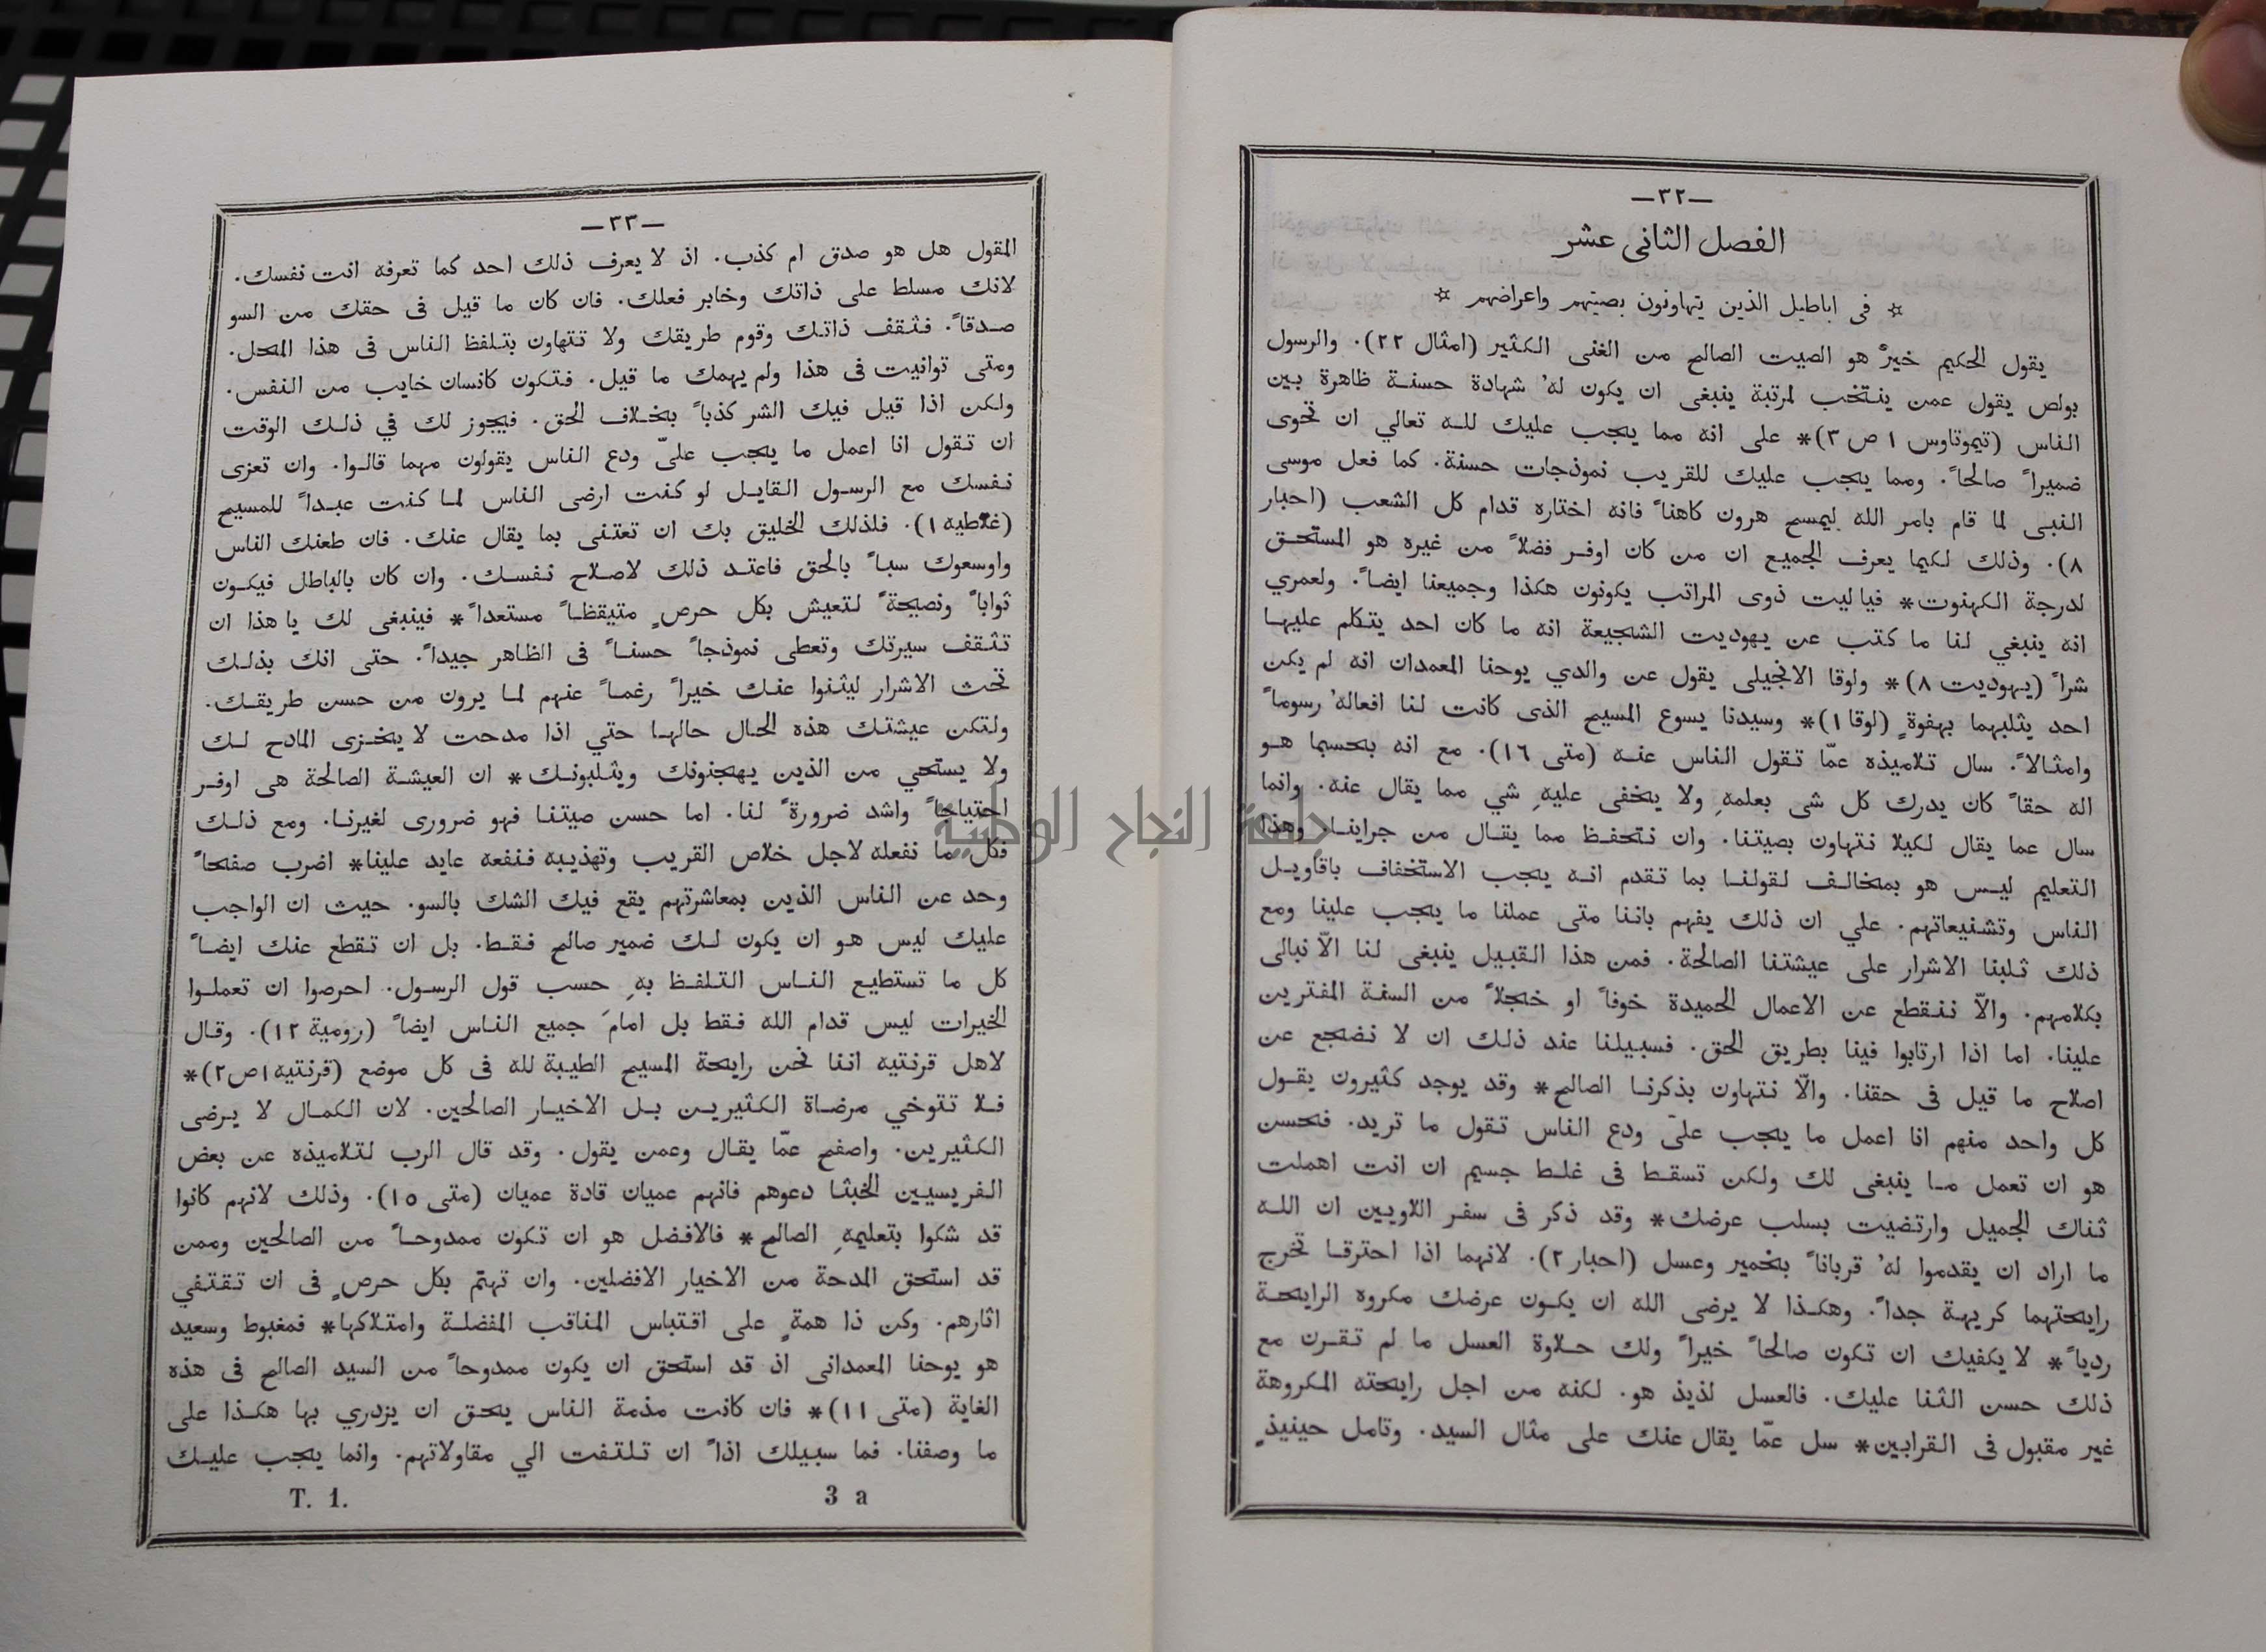 —٣٢—
الفصل الثانى عشر
¤ فى اباطيل الذين يتهاونون بصيتهم واعراضهم ¤
يقول الحكيم خيرٌ هو الصيت الصالح من الغنى الكثير (امثال ٢٢). والرسول
بولص يقول عمن ينتخب لمرتبة ينبغى ان يكون لهُ شهادة حسنة ظاهرة بين
الناس (تيموتاوس ١ ص ٣)* على انه مما يجب عليك لله تعالي ان تحوى
ضميراً صالحاً. ومما يجب عليك للقريب نموذجات حسنة. كما فعل موسى
النبى لما قام بامر الله ليمسح هرون كاهناً فانه اختاره قدام كل الشعب (احبار
٨). وذلك لكيما يعرف الجميع ان من كان اوفر فضلاً من غيره هو المستحق
لدرجة الكهنوت* فياليت ذوى المراتب يكونون هكذا وجميعنا ايضاً. ولعمري
انه ينبغي لنا ما كتب عن يهوديت الشجيعة انه ما كان احد يتكلم عليها
شراً (يهوديت ٨)* ولوقا الانجيلى يقول عن والدي يوحنا المعمدان انه لم يكن
احد يثلبهما بهفوةٍ (لوقا ١)* وسيدنا يسوع المسيح الذى كانت لنا افعالهُ رسوماً
وامثالاً. سال تلاميذه عمّا تقول الناس عنه (متى ١٦). مع انه بحسبما هو
اله حقاً كان يدرك كل شى بعلمهِ ولا يخفى عليهِ شي مما يقال عنه. وانما
سال عما يقال لكيلا نتهاون بصيتنا. وان نتحفظ مما يقال من جراينا. وهذا
التعليم ليس هو بمخالف لقولنا بما تقدم انه يجب الاستخفاف باقاويل
الناس وتشنيعاتهم. علي ان ذلك يفهم باننا متى عملنا ما يجب علينا ومع
ذلك ثلبنا الاشرار على عيشتنا الصالحة. فمن هذا القبيل ينبغى لنا الاّ نبالى
بكلامهم. والاّ ننقطع عن الاعمال الحميدة خوفاً او خجلاً من السنة المفترين
علينا. اما اذا ارتابوا فينا بطريق الحق. فسبيلنا عند ذلك ان لا نضجع عن
اصلاح ما قيل فى حقنا. والاّ نتهاون بذكرنا الصالح* وقد يوجد كثيرون يقول
كل واحد منهم انا اعمل ما يجب علىّ ودع الناس تقول ما تريد. فحسن
هو ان تعمل ما ينبغى لك ولكن تسقط فى غلط جسيم ان انت اهملت
ثناك الجميل وارتضيت بسلب عرضك* وقد ذكر فى سفر اللاويين ان الله
ما اراد ان يقدموا لهُ قرباناً بخمير وعسل (احبار ٢). لانهما اذا احترقا تخرج
رايحتهما كريهة جداً. وهكذا لا يرضى الله ان يكون عرضك مكروه الرايحة
ردياً* لا يكفيك ان تكون صالحاً خيراً ولك حلاوة العسل ما لم تقرن مع
ذلك حسن الثنا عليك. فالعسل لذيذ هو. لكنه من اجل رايحته المكروهة
غير مقبول فى القرابين* سل عمّا يقال عنك على مثال السيد. وتامل حينيذٍ
—٣٣—
المقول هل هو صدق ام كذب. اذ لا يعرف ذلك احد كما تعرفه انت نفسك.
لانك مسلط على ذاتك وخابر فعلك. فان كان ما قيل فى حقك من السو
صدقاً. فثقف ذاتك وقوم طريقك ولا تتهاون بتلفظ الناس فى هذا المحل.
ومتى توانيت فى هذا ولم يهمك ما قيل. فتكون كانسان خايب من النفس.
ولكن اذا قيل فيك الشر كذباً بخلاف الحق. فيجوز لك في ذلك الوقت
ان تقول انا اعمل ما يجب علىّ ودع الناس يقولون مهما قالوا. وان تعزى
نفسك مع الرسول القايل لو كنت ارضى الناس لما كنت عبداً للمسيح
(غلاطيه ١). فلذلك الخليق بك ان تعتنى بما يقال عنك. فان طعنك الناس
واوسعوك سباً بالحق فاعتد ذلك لاصلاح نفسك. وان كان بالباطل فيكون
ثواباً ونصيحةً لتعيش بكل حرصٍ متيقظاً مستعداً* فينبغى لك يا هذا ان
تثقف سيرتك وتعطى نموذجاً حسناً فى الظاهر جيداً. حتى انك بذلك
تحث الاشرار ليثنوا عنك خيراً رغماً عنهم لما يرون من حسن طريقك.
ولتكن عيشتك هذه الحال حالها حتي اذا مدحت لا يخزى المادح لك
ولا يستحي من الذين يهجنونك ويثلبونك* ان العيشة الصالحة هى اوفر
احتياجاً واشد ضرورةً لنا. اما حسن صيتنا فهو ضرورى لغيرنا. ومع ذلك
فكل ما نفعله لاجل خلاص القريب وتهذيبه فنفعه عايد علينا* اضرب صفحاً
وحد عن الناس الذين بمعاشرتهم يقع فيك الشك بالسو. حيث ان الواجب
عليك ليس هو ان يكون لك ضمير صالح فقط. بل ان تقطع عنك ايضاً
كل ما تستطيع الناس التلفظ بهِ حسب قول الرسول. احرصوا ان تعملوا
الخيرات ليس قدام الله فقط بل امامَ جميع الناس ايضاً (رومية ١٢). وقال
لاهل قرنتيه اننا نحن رايحة المسيح الطيبة لله فى كل موضع (قرنتيه ١ص٢)*
فلا تتوخي مرضاة الكثيرين بل الاخيار الصالحين. لان الكمال لا يرضى
الكثيرين. واصفح عمّا يقال وعمن يقول. وقد قال الرب لتلاميذه عن بعض
الفريسيين الخبثا دعوهم فانهم عميان قادة عميان (متى ١٥). وذلك لانهم كانوا
قد شكوا بتعليمهِ الصالح* فالافضل هو ان تكون ممدوحاً من الصالحين وممن
قد استحق المدحة من الاخيار الافضلين. وان تهتم بكل حرصٍ فى ان تقتفي
اثارهم. وكن ذا همةٍ على اقتباس المناقب المفضلة وامتلاكها* فمغبوط وسعيد
هو يوحنا المعمدانى اذ قد استحق ان يكون ممدوحاً من السيد الصالح فى هذه
الغاية (متى ١١)* فان كانت مذمة الناس يحق ان يزدري بها هكذا على
ما وصفنا. فما سبيلك اذاً ان تلتفت الي مقاولاتهم. وانما يجب عليك
T. 1. 3 a
جامعة النجاح الوطنية